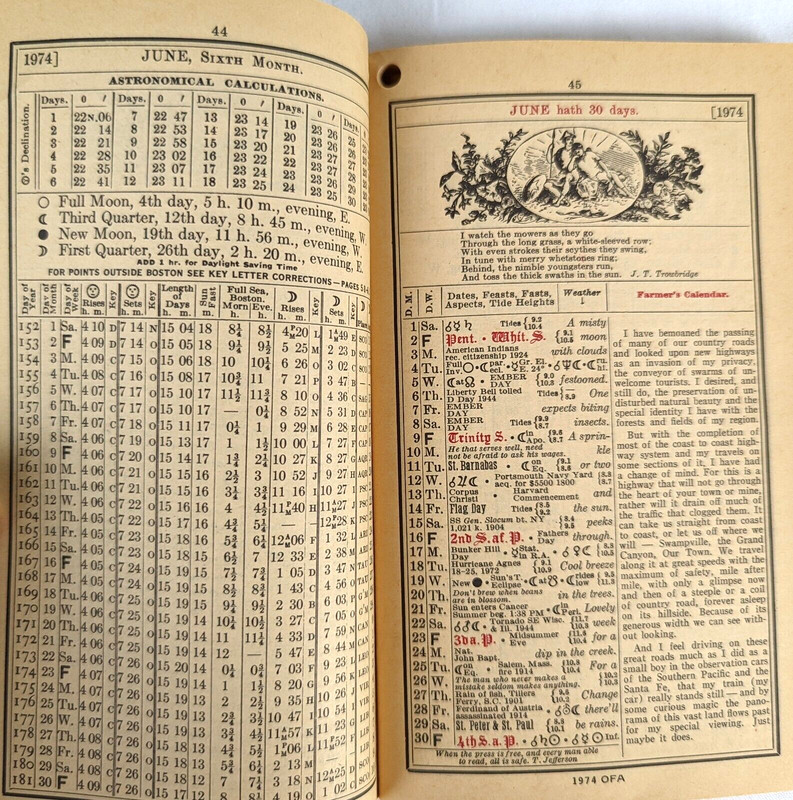 44
1974]
JUNE, SIXTH MONTH.
ASTRONOMICAL CALCULATIONS.
☉'s Declination.
Days. 0 ′ Days. 0 ′ Days. 0 ′ Days. 0 ′ Days.
1 22N.06 7 22 47 13 23 14 19 23 26 25
2 22 14 8 22 53 14 23 17 20 23 26
3 22 21 9 22 58 15 23 20 21 23 26
4 22 28 10 23 02 16 23 22 22 23 26
5 22 35 11 23 07 17 23 24 23 23 26
6 22 41 12 23 11 18 23 25 24 23 25 30
○ Full Moon, 4th day, 5 h. 10 m., evening, E.
☾ Third Quarter, 12th day, 8 h. 45 m., evening, W.
● New Moon, 19th day, 11 h. 56 m., evening, W.
☽ First Quarter, 26th day, 2 h. 20 m., evening, E.
ADD 1 hr. for Daylight Saving Time
FOR POINTS OUTSIDE BOSTON SEE KEY LETTER CORRECTIONS—PAGES
Day of Year Day of Month Day of Week ☉ Rises h. m. Key ☉ Sets h. m. Key Length of Days h. m. Sun Fast m. Full Sea, Boston Morn h. Eve. h. ☽ Rises h. m. Key ☽ Sets h. m. Key
152 1 Sa. 4 10 D 7 14 N 15 04 18 8¼ 8½ 4 20 L 1 49 E
153 2 F 4 09 D 7 14 O 15 05 18 9¼ 9½ 5 25 M 2 23 D
154 3 M. 4 09 C 7 15 O 15 06 18 10 10¼ 6 26 O 3 02 C
155 4 Tu. 4 08 C 7 16 O 15 08 17 10¾ 11 7 21 P 3 47 B
156 5 W. 4 07 C 7 17 O 15 10 17 11½ 11¾ 8 10 O 4 36 C
157 6 Th. 4 07 C 7 17 O 15 10 17 — 0¼ 8 52 N 5 31 D
158 7 Fr. 4 07 C 7 18 O 15 11 17 0¼ 1 9 29 M 6 28 E
159 8 Sa. 4 06 C 7 19 O 15 13 17 1 1½ 10 00 L 7 27 F
160 9 F 4 06 C 7 20 O 15 14 17 1¾ 2¼ 10 27 K 8 27 G
161 10 M. 4 06 C 7 21 O 15 15 16 2½ 3 10 52 J 9 27 H
162 11 Tu. 4 06 C 7 21 O 15 15 16 3¼ 3¾ 11 16 I 10 27 I
163 12 W. 4 06 C 7 22 O 15 16 16 4 4½ 11 40 H 11 27 J
164 13 Th. 4 05 C 7 22 O 15 17 16 4¾ 5¼ — 12 28 K
165 14 Fr. 4 05 C 7 23 O 15 18 16 5¾ 6¼ 12 06 F 1 32 L
166 15 Sa. 4 05 C 7 23 O 15 18 15 6½ 7 12 33 E 2 38 M
167 16 F 4 05 C 7 24 O 15 19 15 7½ 7¾ 1 05 D 3 47 N
168 17 M. 4 05 C 7 24 O 15 19 15 8½ 8¾ 1 43 C 4 56 O
169 18 Tu. 4 06 C 7 25 O 15 19 15 9¼ 9½ 2 30 B 6 03 P
170 19 W. 4 06 C 7 25 O 15 19 14 10¼ 10½ 3 27 C 7 05 O
171 20 Th. 4 06 C 7 25 O 15 19 14 11 11¼ 4 33 D 7 59 N
172 21 Fr. 4 06 C 7 25 O 15 19 14 12 — 5 47 E 8 44 M
173 22 Sa. 4 06 C 7 26 O 15 20 14 0¼ 0¾ 7 03 F 9 23 L
174 23 F 4 07 C 7 26 O 15 19 14 1 1½ 8 20 G 9 56 K
175 24 M. 4 07 C 7 26 O 15 19 13 2 2½ 9 35 H 10 26 J
176 25 Tu. 4 07 C 7 26 O 15 19 13 2¾ 3½ 10 47 I 10 54 I
177 26 W. 4 07 C 7 26 O 15 19 13 3¾ 4½ 11 57 K 11 23 G
178 27 Th. 4 08 C 7 26 O 15 18 13 4¾ 5½ 1 06 L 11 52 F
179 28 Fr. 4 08 C 7 26 O 15 18 13 5¾ 6¼ 2 13 M —
180 29 Sa. 4 09 C 7 26 O 15 18 12 7 7¼ 3 18 N 12 25 D
181 30 F 4 09 C 7 26 O 15 17 12 8 8¼ 4 19 O 1 02 C
45
JUNE hath 30 days.
[1974
I watch the mowers as they go
Through the long grass, a white-sleeved row;
With even strokes their scythes they swing,
In tune with merry whetstones ring;
Behind, the nimble youngsters run,
And toss the thick swaths in the sun. J. T. Trowbridge
D. M. D. W. Dates, Feasts, Fasts, Aspects, Tide Heights Weather ↓
1 Sa. ☌☿♄ Tides {9.2 10.4 A misty
2 F Pent. • Whit. S. {9.1 10.5 moon
3 M. American Indians rec. citizenship 1924 with clouds
4 Tu. Full ○ • par. ecl. • ☿ Gr. El. E. 24°
5 W. ☾ at ☊ • EMBER DAY {9.0 10.3 festooned.
6 Th. Liberty Bell tolled D Day 1944 Tides {8.9 One
7 Fr. EMBER DAY expects biting
8 Sa. EMBER DAY Tides {9.9 8.7 insects.
9 F Trinity S. • ☾ in Apo. {9.6 8.7 A sprin-
10 M. He that serves well need not be afraid to ask his wages. kle
11 Tu. St. Barnabas • ☾ on Eq. {9.1 8.6 or two
12 W. ☌♃☾ • Portsmouth Navy Yard acq. for $5500 1800 {8.8 8.7
13 Th. Corpus Christi • Harvard Commencement and
14 Fr. Flag Day Tides {8.5 9.2 the sun.
15 Sa. SS Gen. Slocum bt. NY 1,021 k. 1904 {8.4 9.5 peeks
16 F 2nd S. af. P. • Fathers Day through.
17 M. Bunker Hill Day • ☿ Stat. in R.A.
18 Tu. Hurricane Agnes 18-25, 1972 Cool breeze
19 W. New ● • Sun's T. Eclipse • ☾ at ☋ • ☾ rides low {9.5 11.8
20 Th. Don't brew when beans are in blossom. in the trees.
21 Fr. Sun enters Cancer Summer beg. 1:38 PM • ☾ in Peri. Lovely
22 Sa. Tornado SE Wisc. & Ill. 1944 {11.7 10.3 week
23 F 3d a. P. • Midsummer Eve {11.6 10.4 for a
24 M. Nat. John Bapt. dip in the creek.
25 Tu. ☾ on Eq. • Salem, Mass. fire 1914 {10.8 10.4 For a
26 W. The man who never makes a mistake seldom makes anything.
27 Th. Rain of fish, Tillers Ferry, S.C. 1901 Change
28 Fr. Ferdinand of Austria assassinated 1914 • there'll
29 Sa. St. Peter & St. Paul be rains.
30 F 4th S. a P. • ☌♄☉ • ☌☿☉ Inf.
When the press is free, and every man able
to read, all is safe. T. Jefferson
Farmer's Calendar.
I have bemoaned the passing
of many of our country roads
and looked upon new highways
as an invasion of my privacy,
the conveyor of swarms of un-
welcome tourists. I desired, and
still do, the preservation of un-
disturbed natural beauty and the
special identity I have with the
forests and fields of my region.
But with the completion of
most of the coast to coast high-
way system and my travels on
some sections of it, I have had
a change of mind. For this is a
highway that will not go through
the heart of your town or mine,
rather will it drain off much of
the traffic that clogged them. It
can take us straight from coast
to coast, or let us off where we
will — Swampville, the Grand
Canyon, Our Town. We travel
along it at great speeds with the
maximum of safety, mile after
mile, with only a glimpse now
and then of a steeple or a coil
of country road, forever asleep
on its hillside. Because of its
generous width we can see with-
out looking.
And I feel driving on these
great roads much as I did as a
small boy in the observation cars
of the Southern Pacific and the
Santa Fe, that my train (my
car) really stands still — and by
some curious magic the pano-
rama of this vast land flows past
for my special viewing. Just
maybe it does.
1974 OFA